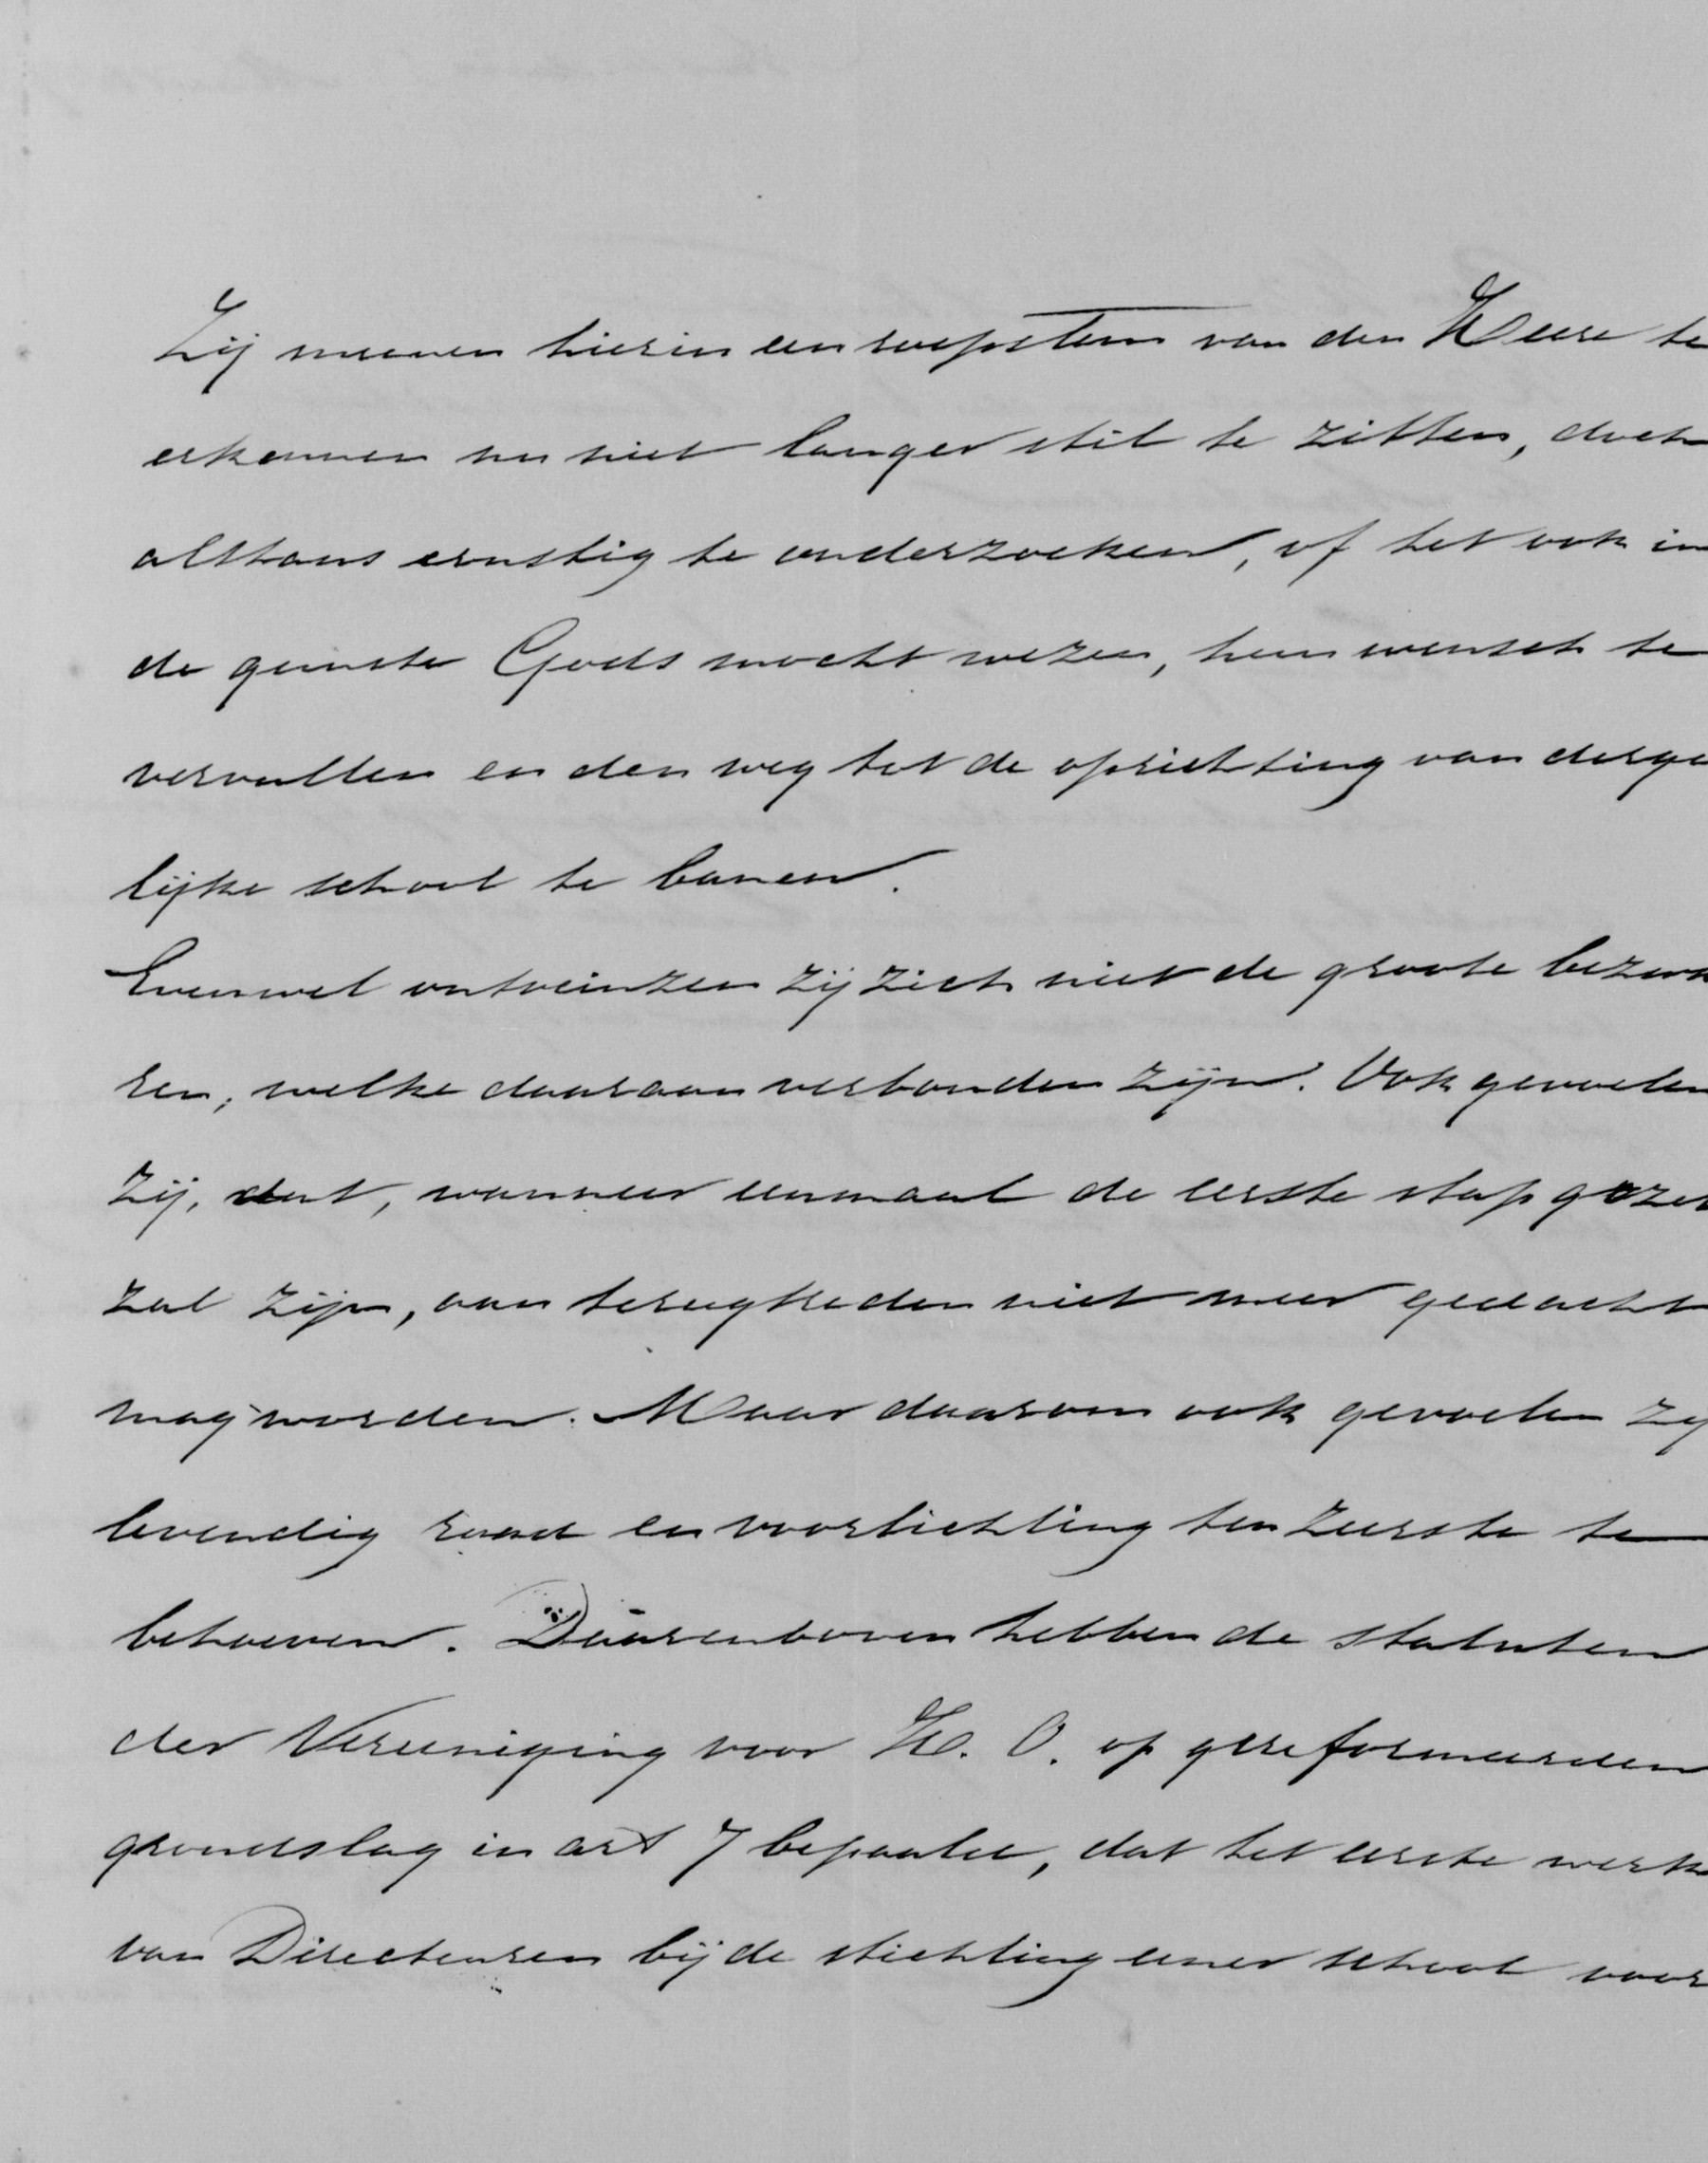 Zij meenen hierin een roepstem van den Heere te
erkennen nu niet langer stil te zitten, doch
althans ernstig te onderzoeken, of het ook in
de gunste Gods mocht wezen, hun wensch te
vervullen en den weg tot de oprichting van derge
lijke school te banen.
Evenwel ontveinzen zij zich niet de groote bezwa
ren, welke daaraan verbonden zijn. Ook gevoelen
zij, dat, wanneer eenmaal de eerste stap gezet
zal zijn, aan terugtreden niet meer gedacht
mag worden. Maar daarom ook gevoelen zij
levendig raad en voorlichting ten zeerste te
behoeven. Daarenboven hebben de statuten
der Vereeniging voor H. O. op gereformeerden
grondslag in art 7 bepaald, dat het eerste werk
van Directeuren bij de stichting eener school voor